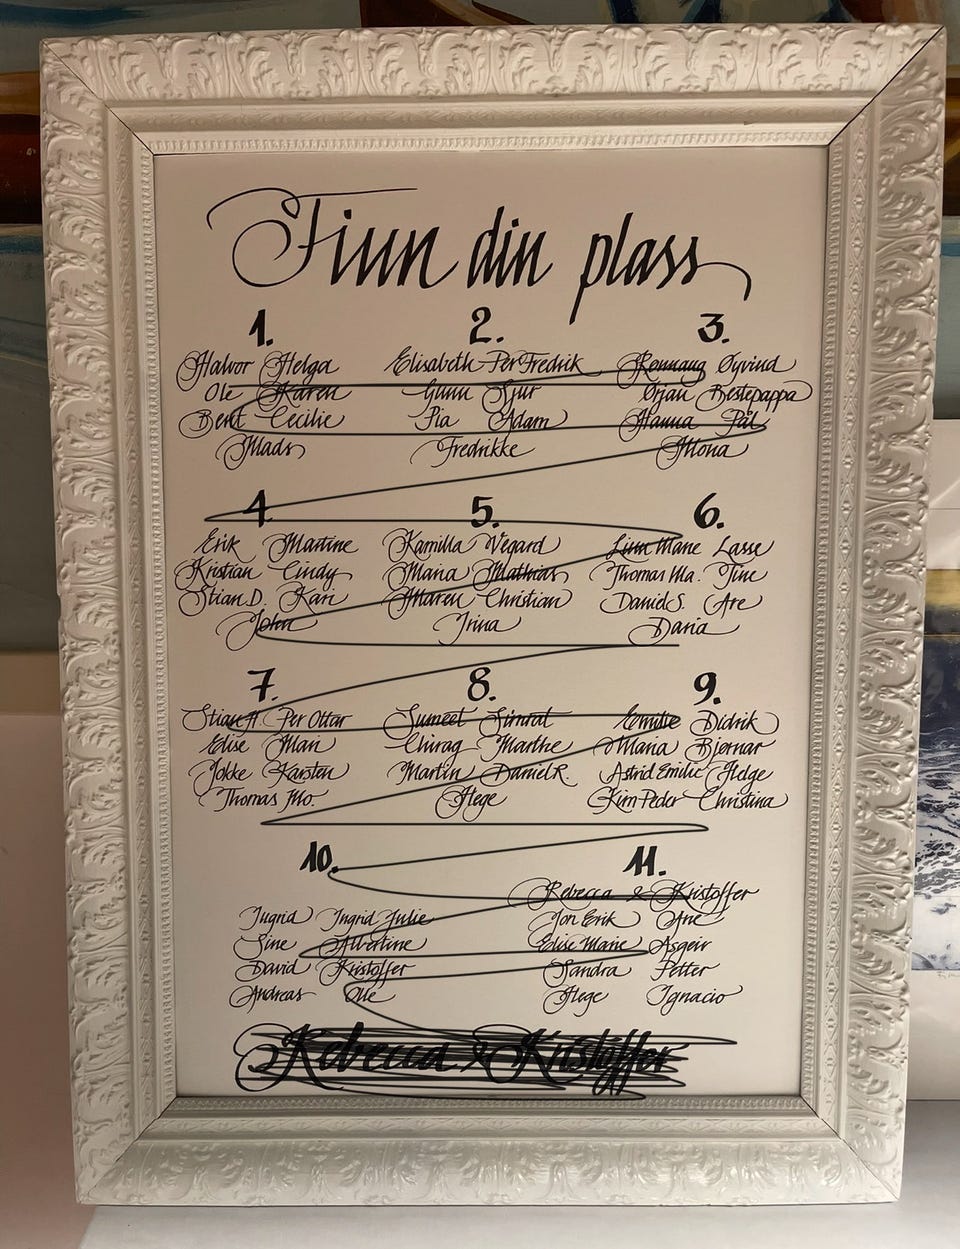 Finn din plass
1.
Halvor Helga
Ole Karen
Bent Cecilie
Mads
2.
Elisabeth Per Fredrik
Gunn Sjur
Pia Adam
Fredrikke
3.
Rønnaug Øyvind
Ørjan Bestepappa
Hanna Pål
Mona
4.
Erik Martine
Kristian Cindy
Stian D. Kari
John
5.
Kamilla Vegard
Maria Mathias
Maren Christian
Irina
6.
Linn Marie Lasse
Thomas Ma. Tine
Daniel S. Are
Daria
7.
Stian H Per Ottar
Elise Mari
Jokke Karsten
Thomas Mo.
8.
Sumeet Simrat
Chirag Marthe
Martin Daniel R.
Hege
9.
Emilie Didrik
Maria Bjørnar
Astrid Emilie Helge
Kim Peder Christina
10.
Ingrid Ingrid Julie
Sine Albertine
David Kristoffer
Andreas Olle
11.
Rebecca & Kristoffer
Jon Eirik Ane
Elise Marie Asgeir
Sandra Petter
Hege Ignacio
Rebecca & Kristoffer